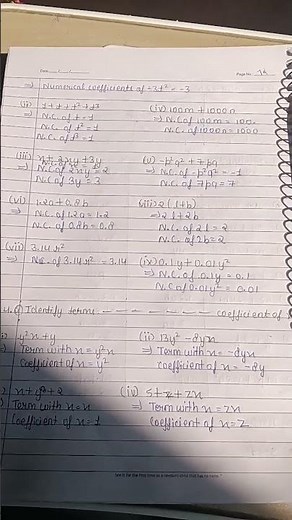 Date
Page No. 72
⇒ Numerical coefficients of -3t² = -3
(ii) 1+t+t²+t³
N.C. of t = 1
N.C. of t² = 1
N.C. of t³ = 1
(iv) 100m + 1000n
⇒ N.C. of 100m = 100
N.C. of 1000n = 1000
(iii) x + 2xy + 3y
⇒ N.C. of 2xy = 2
N.C. of 3y = 3
(v) -p²q² + 7pq
⇒ N.C. of -p²q² = -1
N.C. of 7pq = 7
(vi) 1.2a + 0.8b
⇒ N.C. of 1.2a = 1.2
N.C. of 0.8b = 0.8
2(l+b)
⇒ 2l + 2b
N.C. of 2l = 2
N.C. of 2b = 2
(vii) 3.14r²
⇒ N.C. of 3.14r² = 3.14
(ix) 0.1y + 0.01y²
⇒ N.C. of 0.1y = 0.1
N.C. of 0.01y² = 0.01
Identify terms - - - - - - - coefficient of
y²x + y
⇒ Term with x = y²x
Coefficient of x = y²
(ii) 13y² - 8yx
⇒ Term with x = -8yx
Coefficient of x = -8y
x + y² + 2
⇒ Term with x = x
Coefficient of x = 1
(iv) 5 + z + zx
⇒ Term with x = zx
Coefficient of x = z